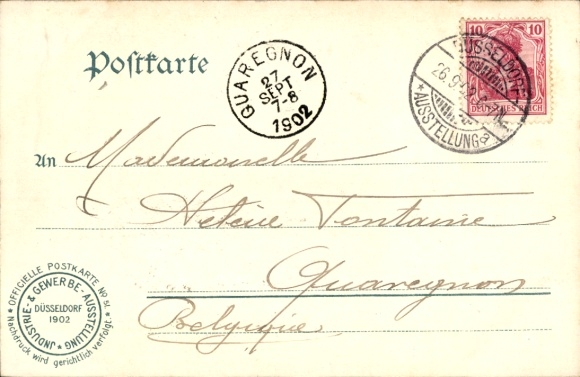 Postkarte
QUAREGNON
27
SEPT
7-8
1902
10 10
DEUTSCHES REICH
DÜSSELDORF
26.9.02
*AUSSTELLUNG*
An Mademoiselle
Helène Fontaine
Quaregnon
Belgique
* OFFICIELLE POSTKARTE No 51 *
Nachdruck wird gerichtlich verfolgt.
JNDUSTRIE- & GEWERBE-AUSSTELLUNG *
DÜSSELDORF
1902